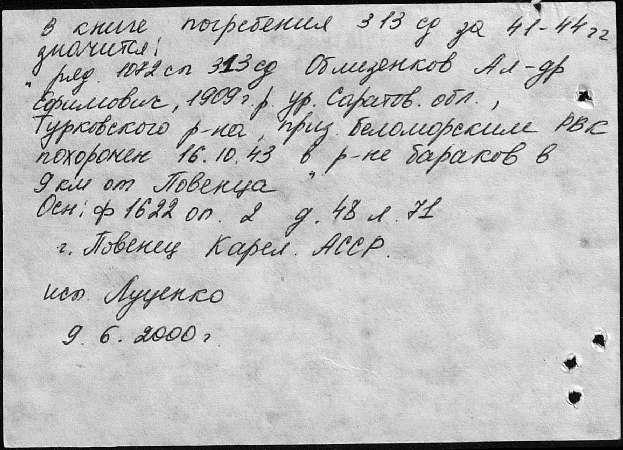 В книге погребения 313 сд за 41-44 гг
значится:
"ряд. 1072 сп 313 сд Облизенков Ал-др
Ефимович, 1909 г.р. ур. Саратов. обл.,
Турковского р-на, приз. Беломорским РВК
похоронен 16.10.43 в р-не бараков в
9 км от Повенца"
Осн: ф 1622 оп. 2 д. 48 л. 71
г. Повенец Карел. АССР.
исп. Луценко
9. 6. 2000 г.